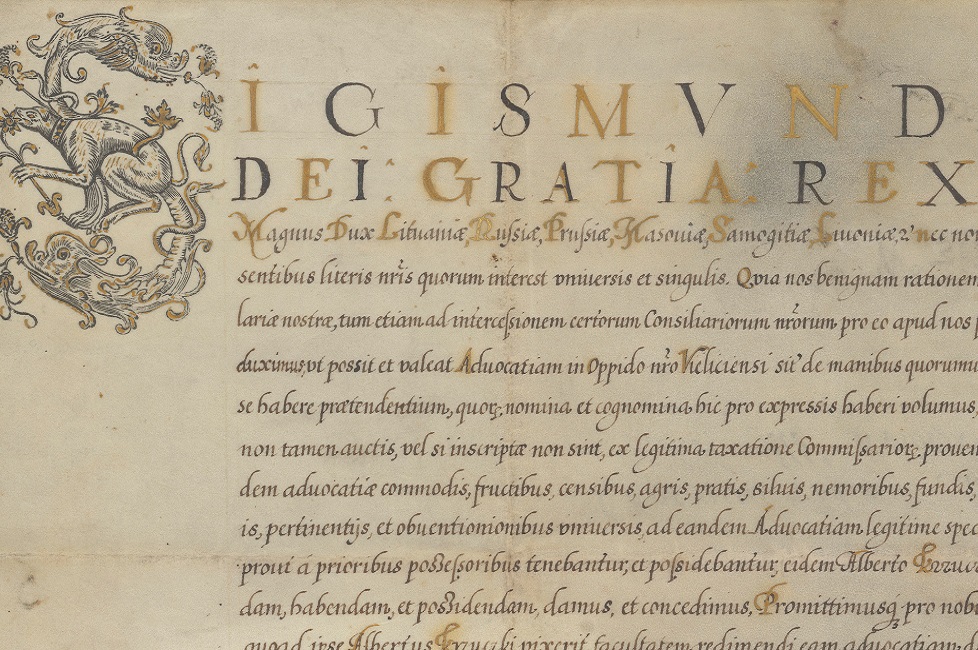 SIGISMVND
DEI: GRATIA: REX
Magnus Dux Lituaniæ, Russiæ, Prussiæ, Masoviæ, Samogitiæ, Livoniæ, nec non
sentibus literis nr̄is quorum interest vniuersis et singulis. Quia nos benignam rationem
lariæ nostræ, tum etiam ad intercessionem certorum Consiliariorum nr̄orum pro eo apud nos
duximus, vt possit et valeat Aduocatiam in Oppido nr̄o Vieliciensi de manibus
se habere prætendentium, quorꝝ nomina et cognomina hic pro expressis haberi volumus,
non tamen auctis, vel si inscriptæ non sint, ex legitima taxatione Commissariorꝝ
dem aduocatiæ commodis, fructibus, censibus, agris, pratis, siluis, nemoribus, fundis,
is, pertinentijs, et obuentionionibus vniuersis, ad eandem Aduocatiam legitime
prout à prioribus possessoribus tenebantur, et possidebantur, eidem Alberto
dam, habendam, et possidendam, damus, et concedimus, Promittimusq́ pro
quoad ipse Albertus vixerit facultatem redimendi eam aduocatiam